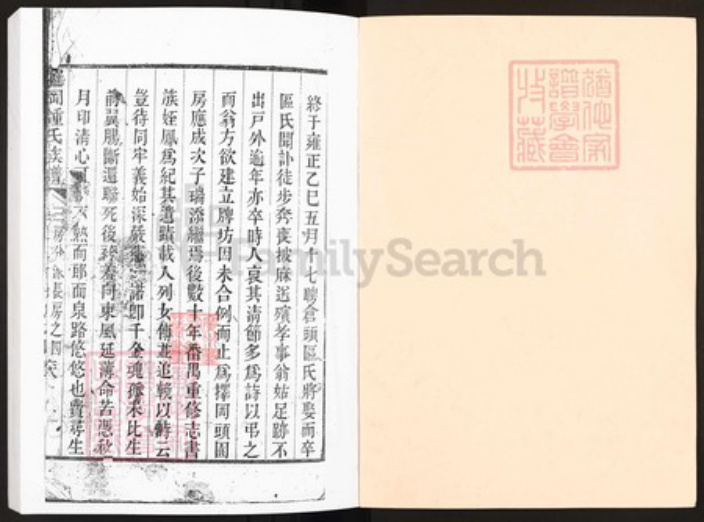 終于雍正乙巳五月十七聘倉頭區氏將娶而卒
區氏聞訃徒步奔喪披麻送殯孝事翁姑足跡不
出戶外逾年亦卒時人哀其清節多為詩以弔之
而翁方欲建立牌坊因未合例而止為擇同頭閤
房應成次子瑞添繼焉後數十年番禺重修志書
族姪鳳為紀其遺蹟載入列女傳並追輓以詩云
豈待同牢義始深嚴 諾卽千金魂孤未比生
前翼腸斷還聯死後 向東風延薄命若憑秋
月印清心可 不然而耶面泉路悠悠也費尋生
岡鍾氏族譜 房之四
FamilySearch
譜學會
收藏